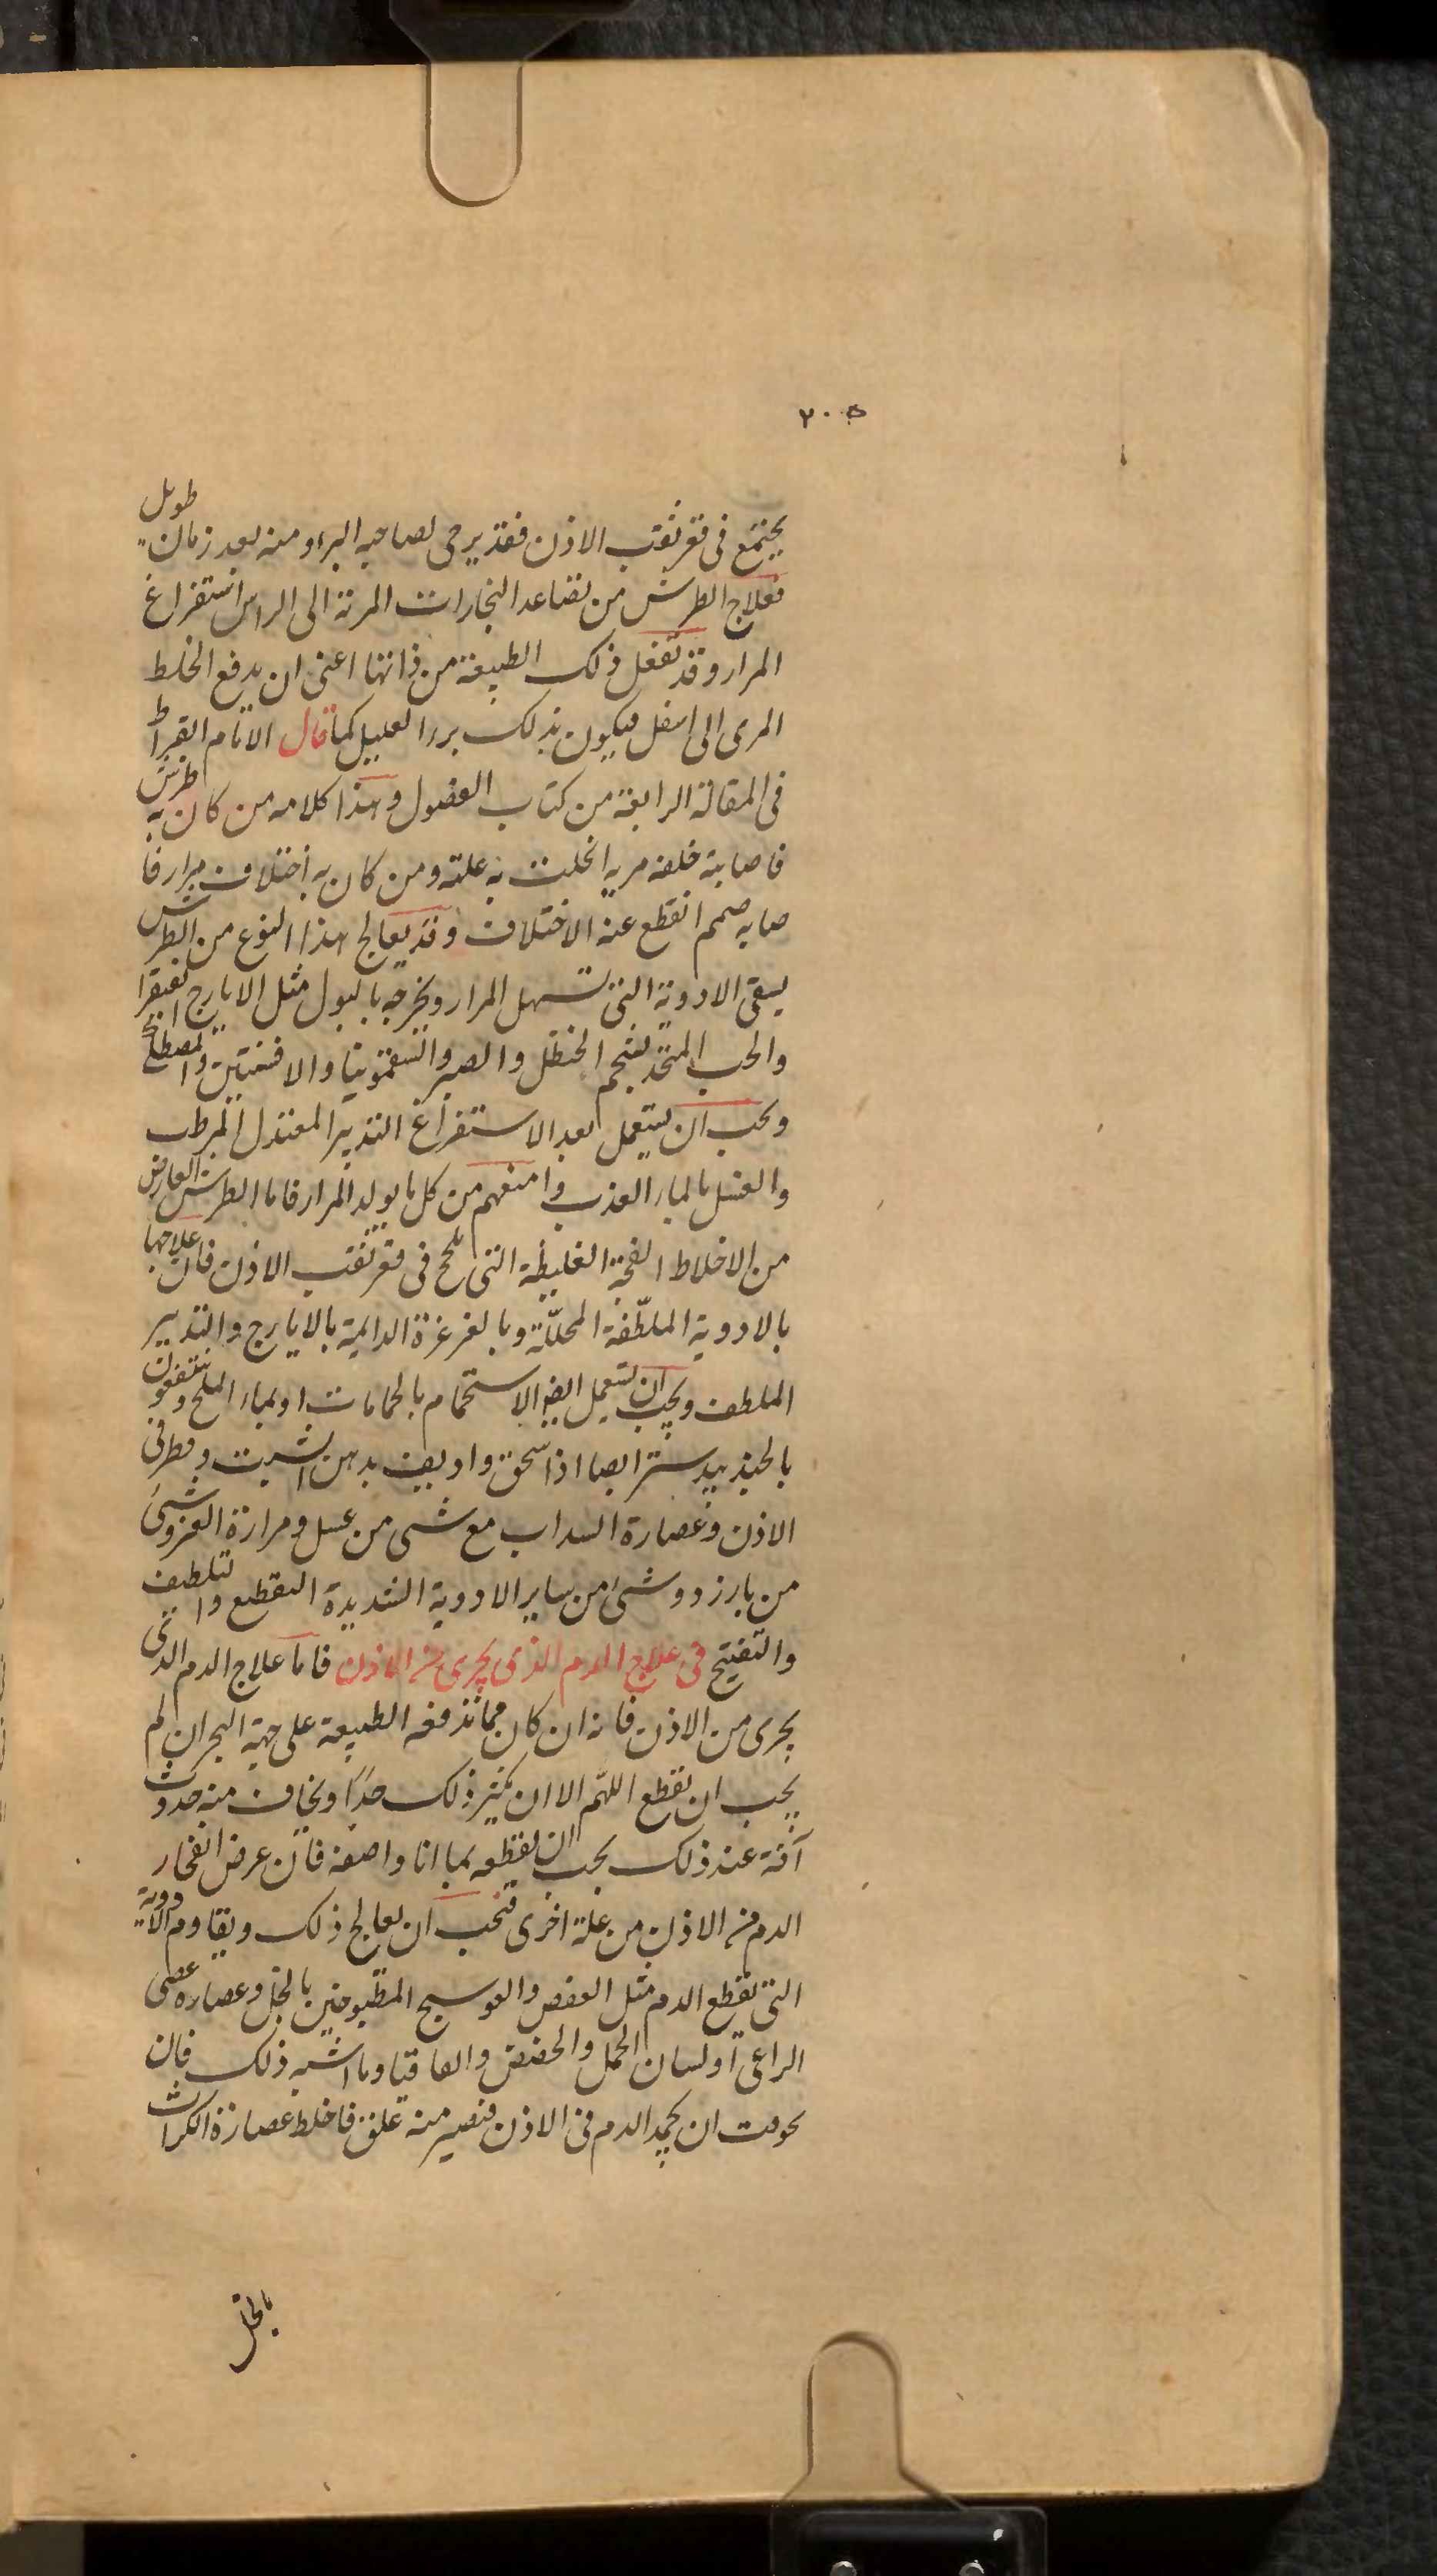 ٢٠٥
يجتمع فى قعر ثقب الاذن فقد يرجى لصاحبه البرء ومنه بعد زمان طويل
فعلاج الطرش من تصاعد البخارات المرية الى الراس استفراغ
المرار وقد تفعل ذلك الطبيعة من ذاتها اعنى ان يدفع الخلط
المرى الى اسفل فيكون بذلك برء العليل كما قال الامام القبراط
فى المقالة الرابعة من كتاب الفصول وهذا كلامه من كان به طرش
فاصابته خلفه مريه انحلت به علته ومن كان به اختلاف مرار فا
صابه صمم انقطع عنه الاختلاف وقد يعالج هذا النوع من الطرش
بسقى الادوية التى تسهل المرار ويخرجه بالبول مثل الايارج الفيقرا
والحب المتخذ بشحم الحنظل والصبر والسقمونيا والافسنتين والمصطكى
ويجب ان يستعمل بعد الاستفراغ التدبير المعتدل المرطب
والغسل بالماء العذب وامنعهم من كل ما يولد المرار فاما الطرش العارض
من الاخلاط الفجة الغليظة التى تلحج فى قعر ثقب الاذن فان علاجها
بالادوية الملطّفة المحلّلة وبالغرغرة الدايمة بالايارج والتدبير
الملطف ويجب ان يستعمل ايضا الاستحمام بالحمامات او بماء الملح وينتفعون
بالجندبيدستر ايضا اذا سحق واديف بدهن الشبت وقطر فى
الاذن وعصارة السداب مع شى من عسل ومرارة العنز وشىء
من بارزد وشىء من ساير الادوية الشديدة التقطيع والتلطيف
والتفتيح فى علاج الدم الذى يجرى من الاذن فاما علاج الدم الذى
يجرى من الاذن فانه ان كان مما تدفعه الطبيعة على جهة البحران لم
يجب ان يقطع اللهّم الا ان يكثر ذلك جدًا ويخاف منه حدوث
آفة عند ذلك يجب ان يقطعه بما انا واصفه فان عرض انفجار
الدم من الاذن من علة اخرى فيجب ان يعالج ذلك ويقاوم الادوية
التى يقطع الدم مثل العفص والعوسج المطبوخين بالخل وعصاره عصى
الراعى او لسان الحمل والحضض والعاقيا وما اشبه ذلك فان
خوفت ان يجمد الدم فى الاذن فتصير منه علق فاخلط عصارة الكراث
بالخل